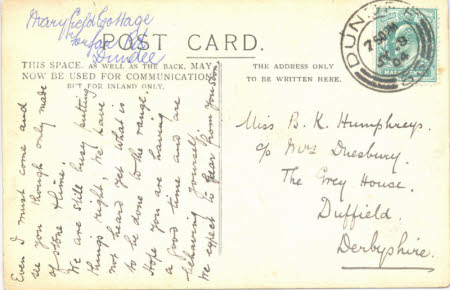 Maryfield Cottage
Forfar Rd
Dundee
POST CARD.
THIS SPACE, AS WELL AS THE BACK, MAY
NOW BE USED FOR COMMUNICATION,
BUT FOR INLAND ONLY.
THE ADDRESS ONLY
TO BE WRITTEN HERE.
Even I must come and
see you though only made
of stone & lime.
We are still busy putting
things right, We have
not heard yet what is
to be done to the range.
Hope you are having
a good time and are
behaving yourself.
We expect to hear from you soon
Miss B. K. Humphreys.
c/o Mrs Duesbury.
The Grey House.
Duffield.
Derbyshire.
DUNDEE